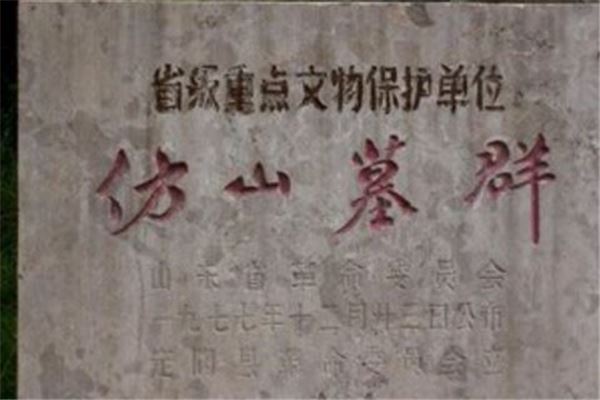 省级重点文物保护单位
仿山墓群
山东省革命委员会
一九七七年十二月廿三日公布
定陶县革命委员会立